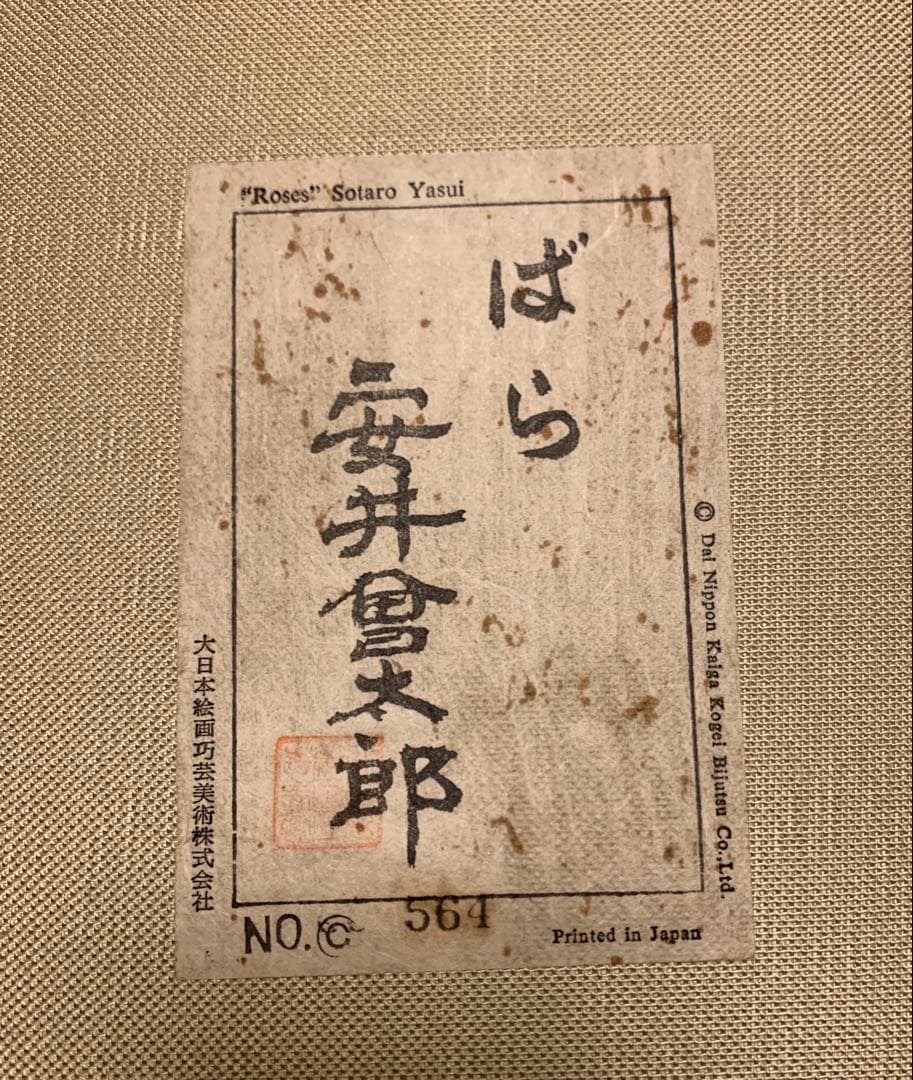 "Roses" Sotaro Yasui
ばら
安井曾太郎
© Dai Nippon Kaiga Kogei Bijutsu Co., Ltd.
大日本絵画巧芸美術株式会社
NO. © 564
Printed in Japan